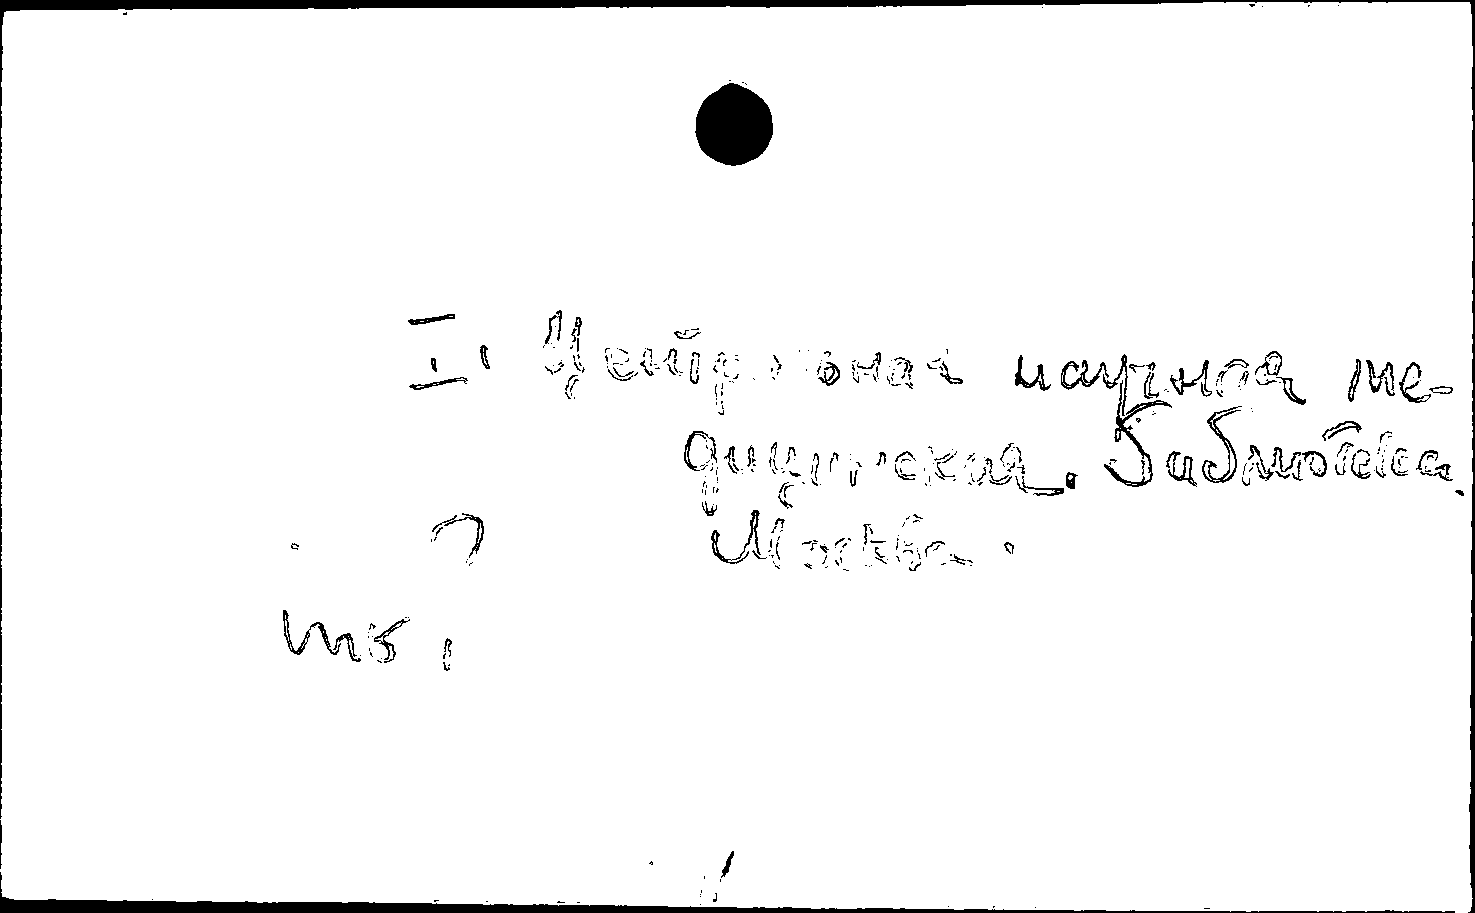 I. Центральная научная ме-
дицинская. Библиотека.
Москва.